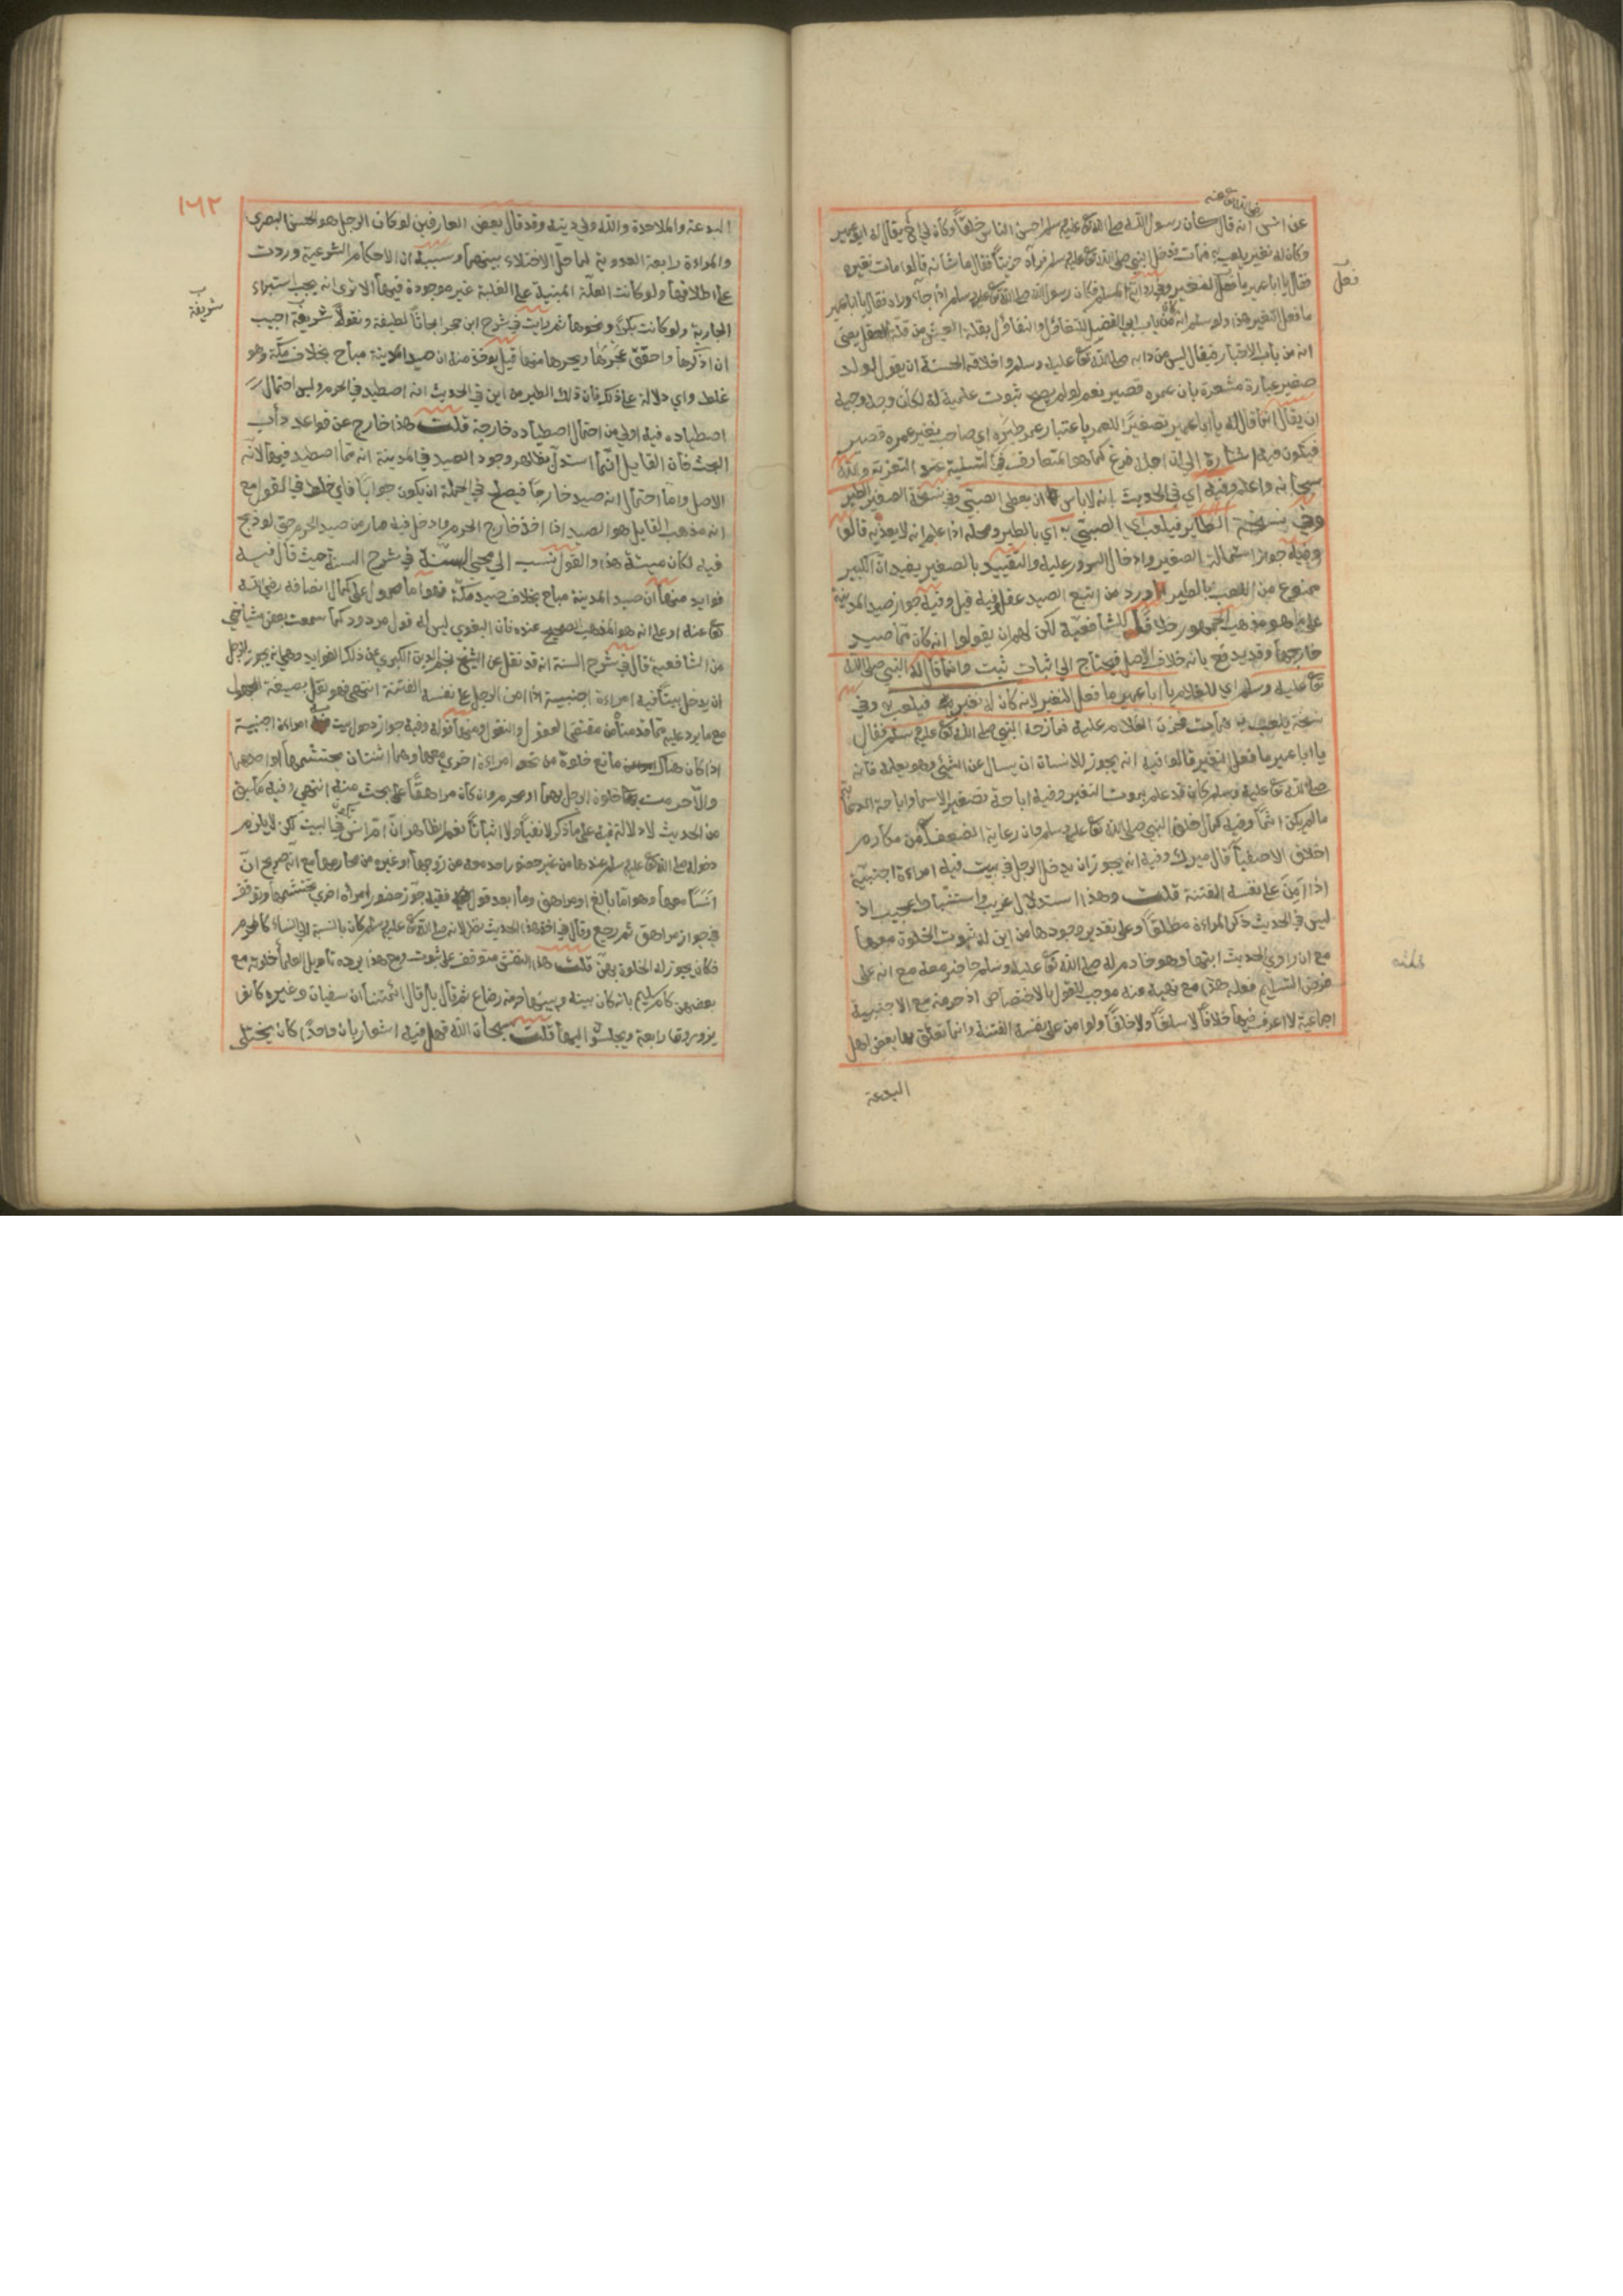 رضي الله تعالى عنه
عن انس انه قال كان رسول الله صلى الله تعالى عليه وسلم احسن الناس خلقاً وكان لي اخ يقال له ابو عمير
وكان له نغير يلعب به فمات فدخل النبي صلى الله تعالى عليه وسلم فرآه حزيناً فقال ما شانه قالوا مات نغيره
فقال يا ابا عمير ما فعل النغير وفي رواية لمسلم فكان رسول الله صلى الله تعالى عليه وسلم اذا جاء ورآه فقال يا ابا عمير
فعل
ما فعل النغير هذا ولو سلم انه من باب ابي الفضل للتفاؤل والتفاؤل بقلة العيش من قلة العقل يعني
انه من باب الاخبار فيقال ليس من دابه صلى الله تعالى عليه وسلم واخلاقه الحسنة ان يقول لولد
صغير عبارة مشعرة بان عمره قصير نعم لو لم يصح ثبوت علمية له لكان وجه وجيه
ان يقال انما قال له يا ابا عمير تصغيراً للعمر باعتبار عمر طيره اي صاحب نغير عمره قصير
فيكون فيه اشارة الى ان اجله فرغ كما هو المتعارف في التسلية عند التعزية والله
سبحانه واعلم وفيه اي في الحديث انه لا باس ان يعطى الصبي وفي نسخة الصغير الطير
وفي نسخة الطاير فيلعب اي الصبي به اي بالطير ومحله اذا علم انه لا يعذبه قالوا
وفيه جواز استمالة الصغير وادخال السرور عليه والتقييد بالصغير يفيد ان الكبير
ممنوع من اللعب بالطير لما ورد من اتبع الصيد غفل وفيه قيل وفيه جواز صيد المدينة
على ما هو مذهب الجمهور خلافاً للشافعية لكن لهم ان يقولوا انه كان مما صيد
خارجها وقد يدفع بانه خلاف الاصل فيحتاج الى اثبات ثبت وانما قال له النبي صلى الله
تعالى عليه وسلم اي للغلام يا ابا عمير ما فعل النغير لانه كان له نغير فيلعب به وفي
نسخة يلعب به فمات فحزن الغلام عليه فمازحه النبي صلى الله تعالى عليه وسلم فقال
يا ابا عمير ما فعل النغير قالوا فيه انه يجوز للانسان ان يسال عن الشئ وهو يعلمه فانه
صلى الله تعالى عليه وسلم كان قد علم بموت النغير وفيه اباحة تصغير الاسماء واباحة الدعابة
ما لم يكن اثماً وفيه كمال خلق النبي صلى الله تعالى عليه وسلم فان رعاية الضعفاء من مكارم
اخلاق الاصفياء قال ميرك وفيه انه يجوز ان يدخل الرجل في بيت فيه امراءة اجنبية
اذا امن على نفسه الفتنة قلت وهذا استدلال غريب واستنباط عجيب اذ
ليس في الحديث ذكر المراءة مطلقاً وعلى تقدير وجودها من اين له ثبوت الخلوة معها
مع ان راوي الحديث ابنها وهو خادم له صلى الله تعالى عليه وسلم حاضر معه مع انه على
فرض التسليم فعله هذا مع نهيه عنه موجب للقول بالاختصاص اذ حرمته مع الاجنبية
اجماعية لا اعرف فيها خلافاً لا سلفاً ولا خلفاً ولو امن على نفسه الفتنة وانما تعلق بها بعض اهل
البدعة
١٦٢
البدعة والملاحدة والله ولي دينه وقد قال بعض العارفين لو كان الرجل هو الحسن البصري
والمراءة رابعة العدوية لما حل الاختلاء بينهما وسببه ان الاحكام الشرعية وردت
على اطلاقها ولو كانت العلة المبنية على الغلبة غير موجودة فيها الا ترى انه يجب استبراء
الجارية ولو كانت بكراً ونحوها ثم رايت في شرح ابن حجر ابحاثاً لطيفة ونقولاً شريفة احببت
شريفة
ان اذكرها واحقق عجرها وبجرها منها قيل يوخذ منه ان صيد المدينة مباح بخلاف مكة وهو
غلط واي دلالة على ذلك فان ذلك الطير من اين في الحديث انه اصطيد في الحرم وليس احتمال
اصطياده فيه اولى من احتمال اصطياده خارجة قلت هذا خارج عن قواعد دأب
البحث فان القايل انما استدل بظاهر وجود الصيد في المدينة انه مما اصطيد فيها لانه
الاصل واما احتمال انه صيد خارجا فيصلح في الجملة ان يكون جواباً فاي غلط في القول مع
انه مذهب القايل هو الصيد اذا اخذ خارج الحرم وادخل فيه صار من صيد الحرم حتى لو ذبح
فيه لكان ميتة هذا والقول نسب الى محيى السنة في شرح السنة حيث قال فيه
فوايد منها ان صيد المدينة مباح بخلاف صيد مكة فهو اما محمول على كمال انصافه رضي الله
تعالى عنه او على انه هو المذهب الصحيح عنده فان البغوي ليس له قول مردود كما سمعت بعض مشايخي
من الشافعية قال في شرح السنة انه قد نقل عن الشيخ نجم الدين الكبرى عن ذلك الفوايد وهي انه يجوز للرجل
ان يدخل بيتاً فيه امراءة اجنبية اذا امن الرجل على نفسه الفتنة انتهى فهو نقل بصيغة المجهول
مع ما يرد عليه مما قدمناه من مقتضى المعقول والنقول ومنها قوله وفيه جواز دخول بيت فيه امراءة اجنبية
اذا كان هناك مانع خلوة من نحو امراءة اخرى معها وهما ثنتان يحتشمها او احدهما
والا حرمت خلوة الرجل بهما او محرم وان كان مراهقاً على بحث فيه انتهى وفيه ما سبق
من الحديث لا دلالة فيه على ما ذكر لا نفياً ولا اثباتاً نعم الظاهر ان ام انس في البيت لكن لا يلزم
دخوله صلى الله تعالى عليه وسلم عندها من غير حضور احد معه من زوجها او غيره من محارمها مع انه صريح ان
انساً معها وهو اما بالغ او مراهق وما ابعد قول فقيه جوز حضور امراة اخرى يحتشمها وتوقف
في جواز مراهق ثم رجع وقال في اخذ هذا الحديث نظر لانه صلى الله تعالى عليه وسلم كان بالنسبة الى النساء كالمحرم
فكان يجوز له الخلوة بهن قلت هذا النقش متوقف على ثبوت ومع هذا يرده تأويل العلماء خلوته مع
بعضهن كام سليم بانه كان بينه وبينها حرمة رضاع ثم قال بل قال ائمتنا ان سفيان وغيره كانوا
يزورون رابعة ويجلسون اليها قلت سبحان الله فهل فيه اشعار بان واحدًا كان يختلى